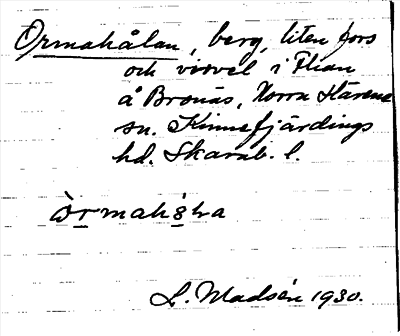 Ormahålan, berg, liten fors
och virvel i Flian
å Bronäs, Norra Härene
sn. Kinnefjärdings
hd. Skarab. l.
L. Madsén 1930.